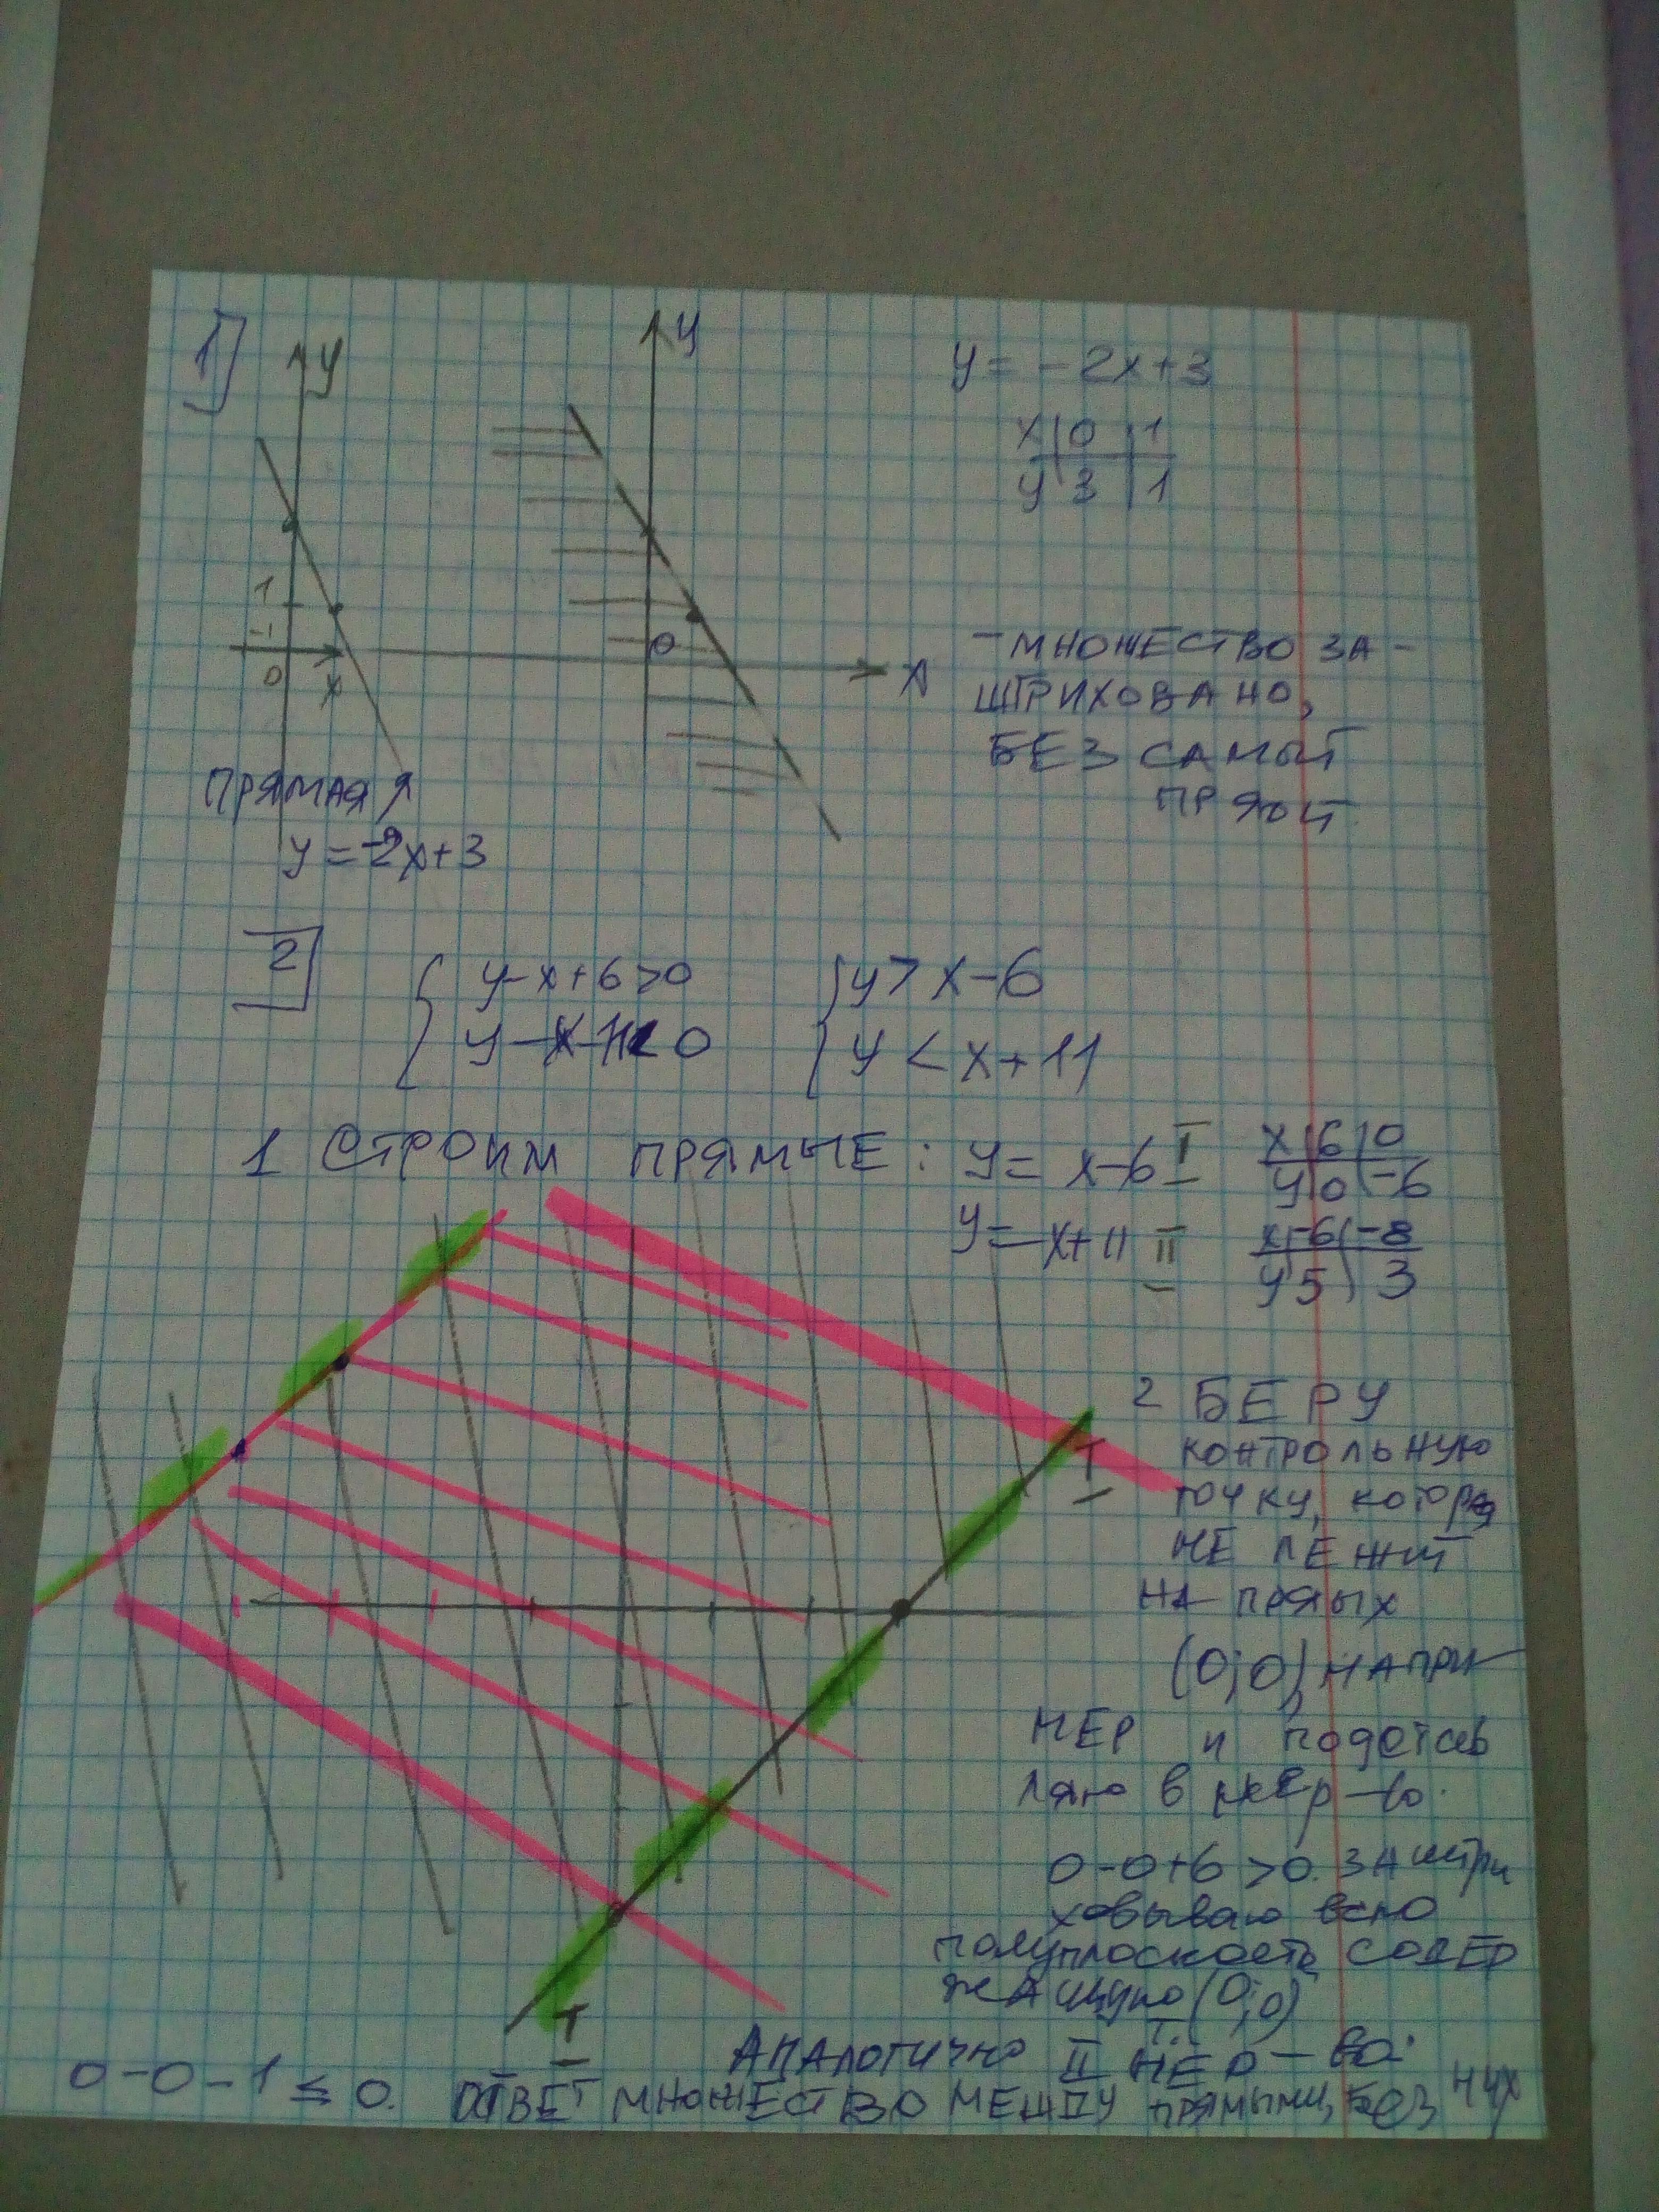 1
y
y
y = -2x+3
x 0 1
y 3 1
1
0
x
0
x
- МНОЖЕСТВО ЗА-
ШТРИХОВАНО,
БЕЗ САМЫЙ
ПРЯОЙ
ПРЯМАЯ
y = -2x+3
2
y-x+6>0
y>x-6
y-x-11<0
y<x+11
1 СТРОИМ ПРЯМЫЕ: y= x-6 I
x 6 0
y 0 -6
y= x+11 II
x -6 -8
y 5 3
I
2 БЕРУ
КОНТРОЛЬНУЮ
ТОЧКУ,
НЕ ЛЕЖИТ
НА ПРЯЫХ
(0;0), НАПРИ
МЕР и подстав
ляю в нер-во.
0-0+6>0. ЗАштри
ховываю всю
полуплоскость СОДЕР
ЖАщую (0;0)
I
АНАЛОГИЧНО II НЕР-ВО:
0-0-1 ≤ 0. ОТВЕТ МНОЖЕСТВО МЕЖДУ ПРЯМЫМИ, БЕЗ НИХ